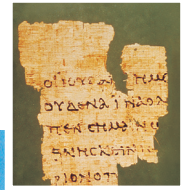 ΟΙΙΟΥΔΑΙ ΗΜΕ
ΟΥΔΕΝΑΪΝΑΟΛ
ΠΕΝCΗΜΑΙΝ
ΘΝΗCΚΕΙΝ
ΡΙΟΝΟΠ